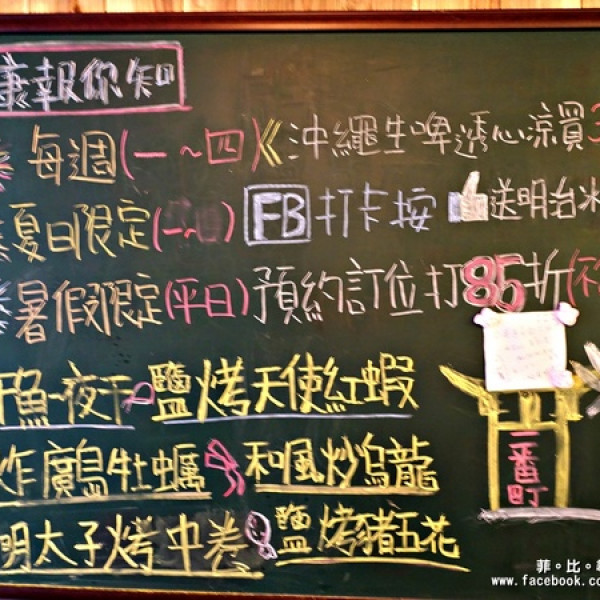 康報你知
每週(一~四)《沖繩生啤透心涼買3
夏日限定(一~ ) FB 打卡按 送明治米
暑假限定(平日)預約訂位打85折(不
魚一夜干 鹽烤天使紅蝦
炸廣島牡蠣 和風炒烏龍
明太子烤中卷 鹽烤豬五花
一番町
菲。比。
www.facebook.com